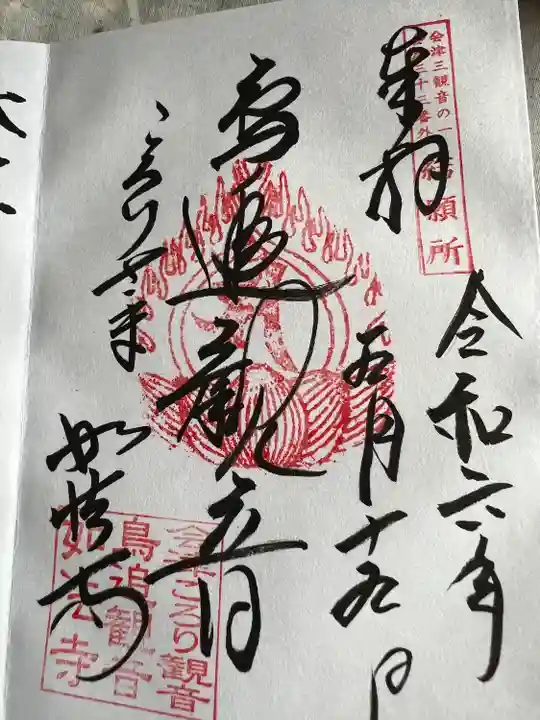 会津三観音の一
三十三番外
結願所
奉拝
令和六年
五月十九日
鳥追観音
ころりさま
如法寺
会津ころり観音
鳥追観音
如法寺